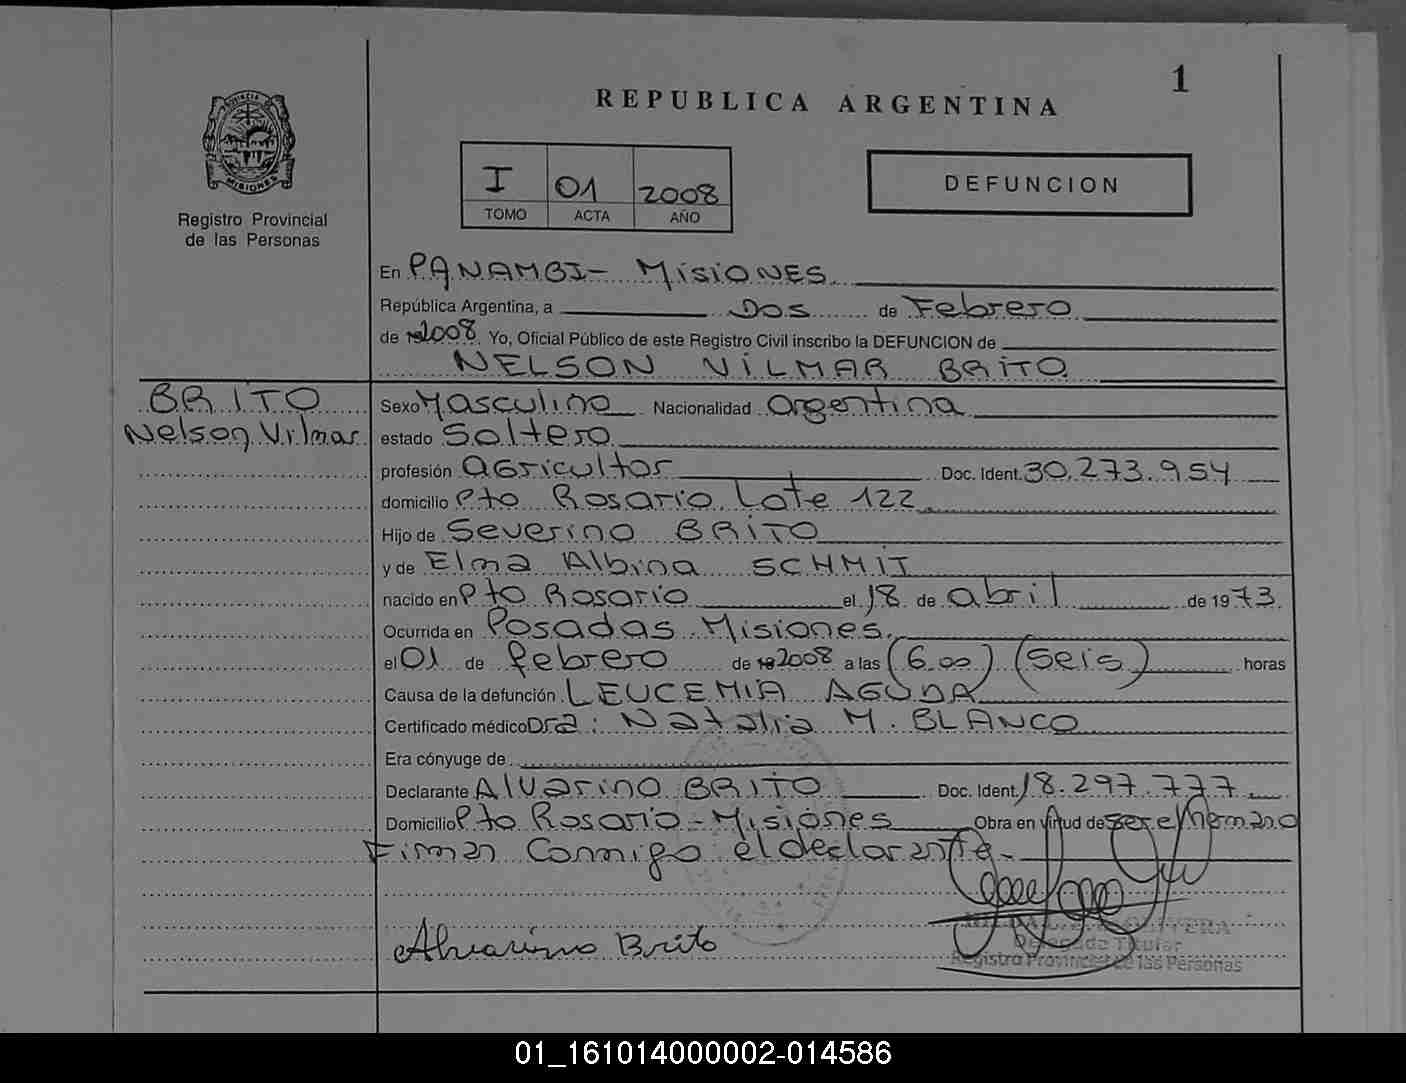 1
REPUBLICA ARGENTINA
PROVINCIA DE
MISIONES
Registro Provincial
de las Personas
I 01 2008
TOMO ACTA AÑO
DEFUNCION
En PANAMBI- MISIONES
República Argentina, a DOS de Febrero
de 2008. Yo, Oficial Público de este Registro Civil inscribo la DEFUNCION de
NELSON VILMAR BRITO
BRITO
Nelson Vilmar
Sexo Masculino Nacionalidad argentina
estado Soltero
profesión agricultor Doc. Ident. 30.273.954
domicilio Pto Rosario Lote 122.
Hijo de Severino BRITO
y de Elma Albina SCHMIT
nacido en Pto Rosario el 18 de abril de 1973.
Ocurrida en Posadas Misiones.
el 01 de febrero de 2008 a las (6.00) (seis) horas
Causa de la defunción LEUCEMIA AGUDA
Certificado médico Dra: Natalia M. BLANCO
Era cónyuge de
Declarante Alvarino BRITO Doc. Ident. 18.297.777.
Domicilio Pto Rosario - Misiones Obra en virtud de ser el hermano
Firman Conmigo el declarante.
Alvarino Brito
OLIVERA
Delegada Titular
Registro Provincial de las Personas
01_161014000002-014586